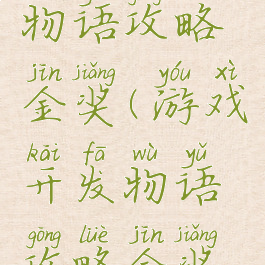 物语攻略
jīn jiǎng yóu xì
金奖(游戏
kāi fā wù yǔ
开发物语
gōng lüè jīn jiǎng
攻略金奖